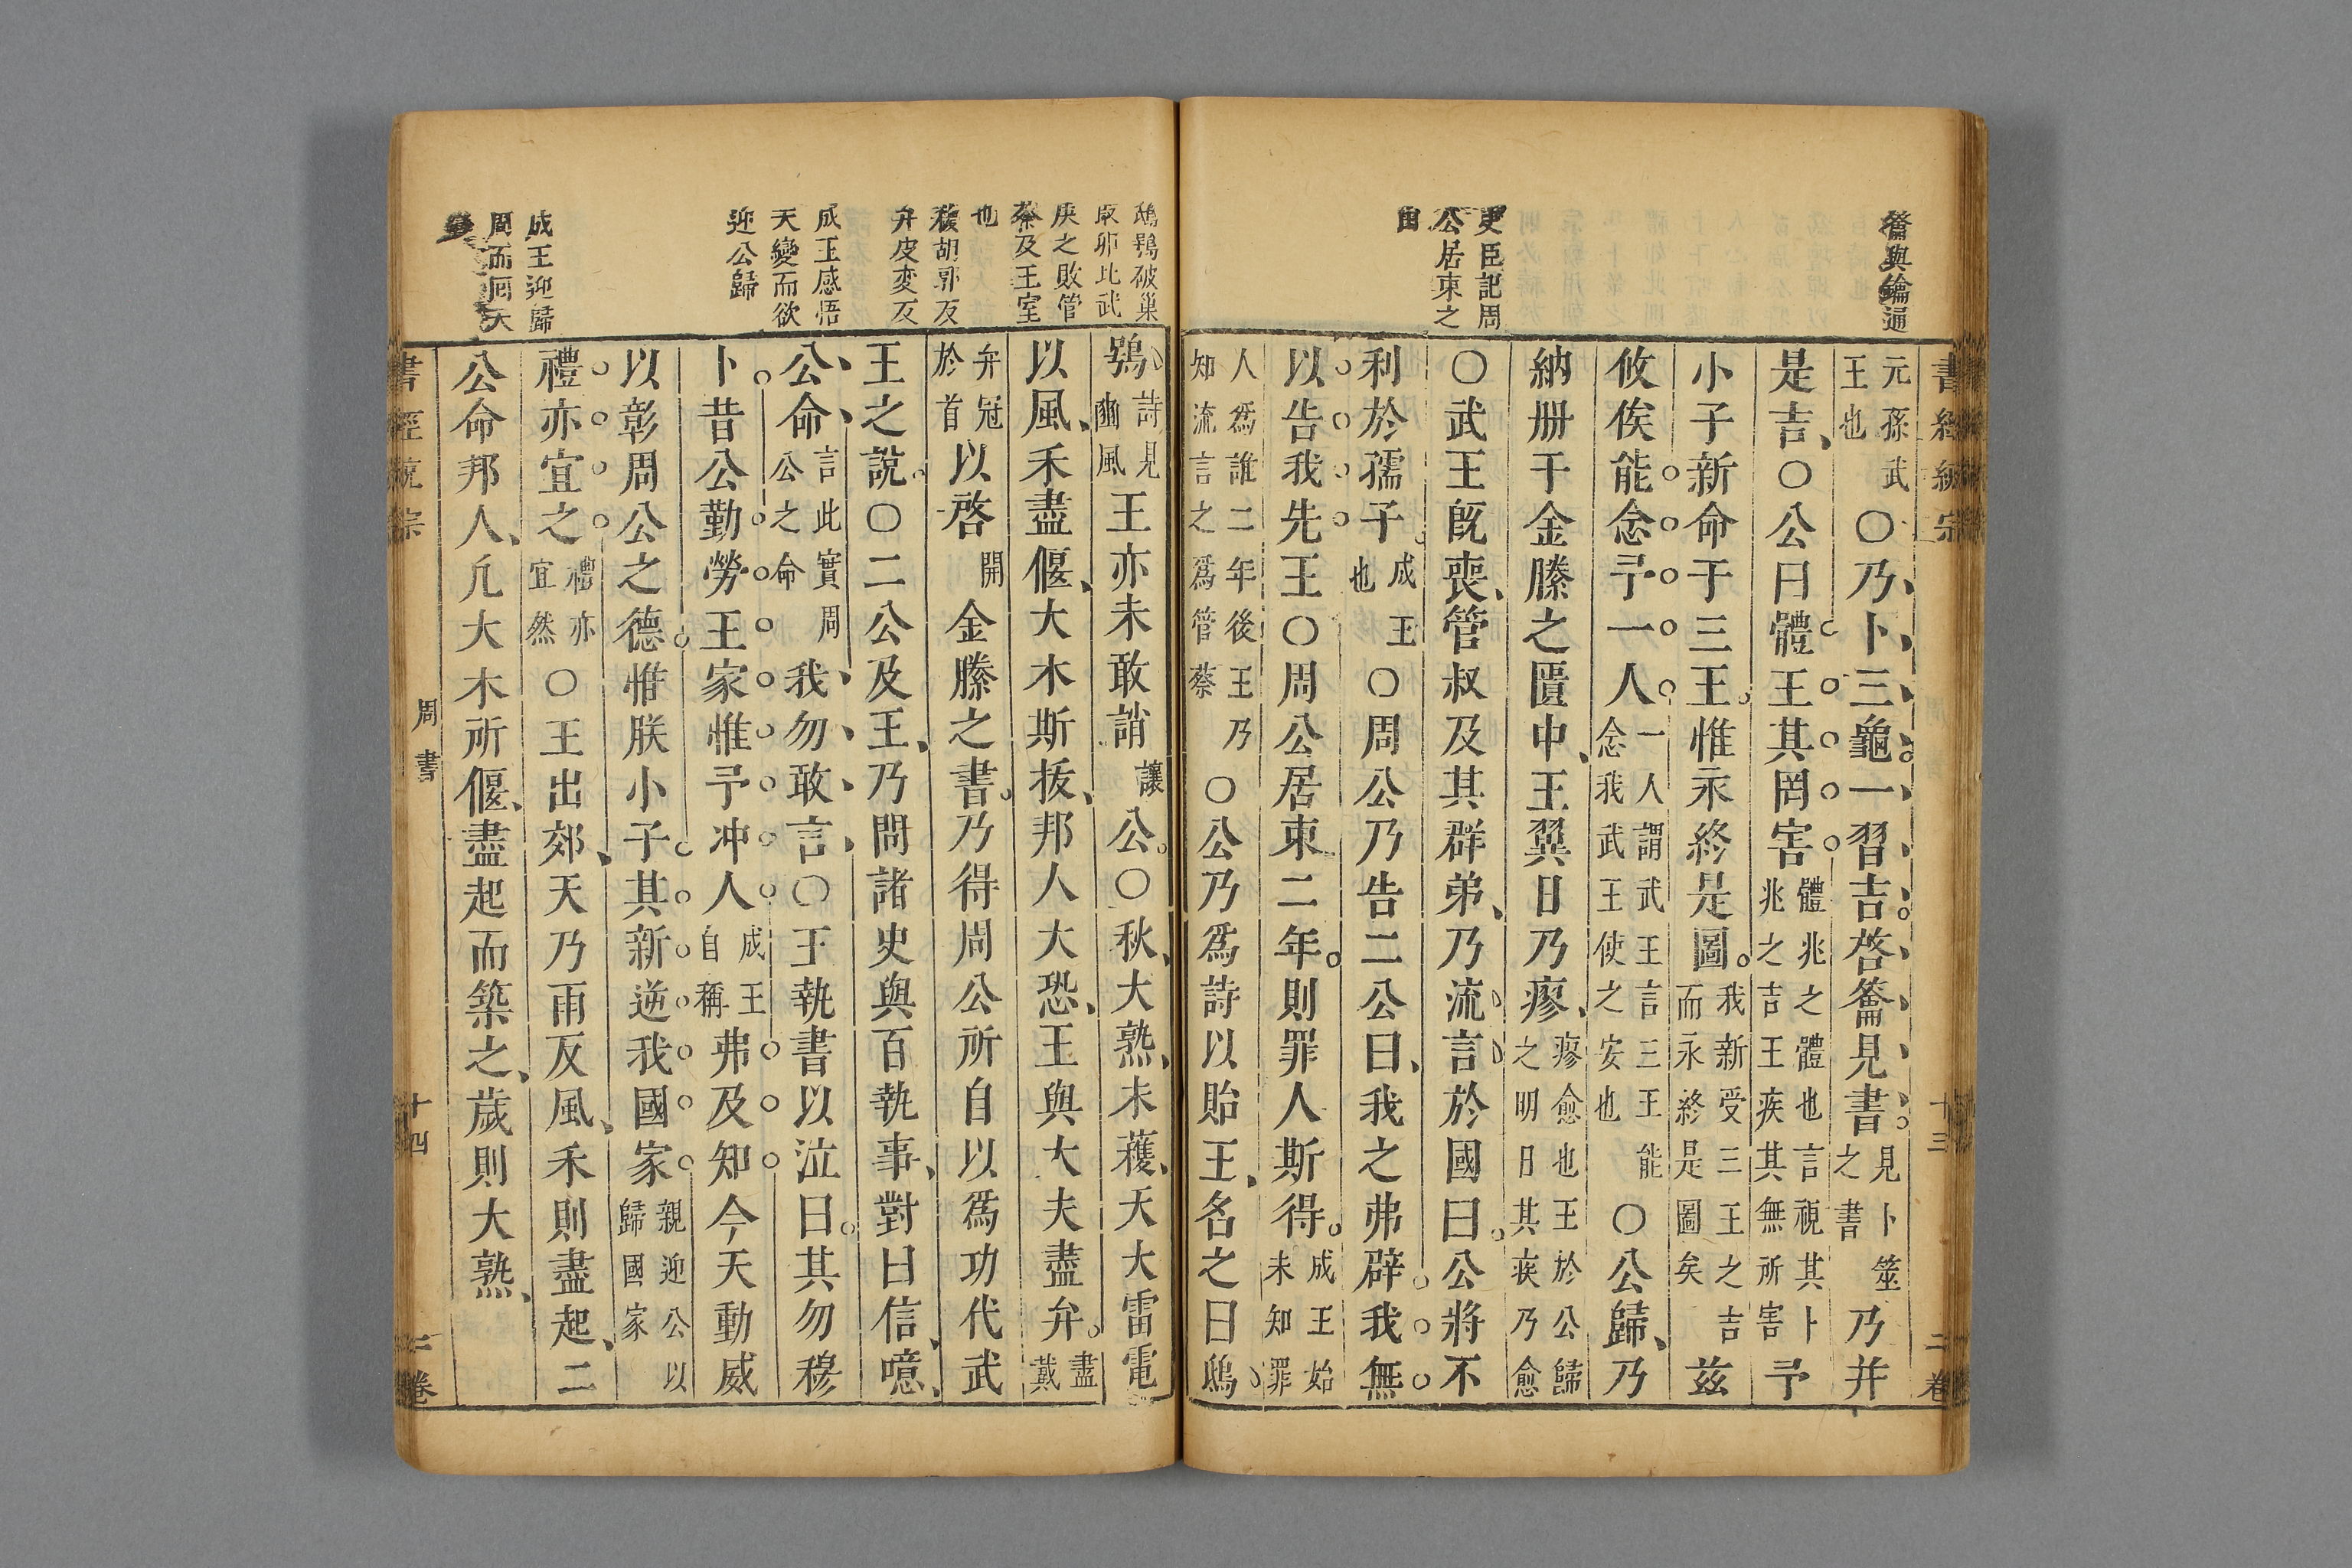 書經統宗 十三 二卷
籥與鑰通
史臣記周
公居東之
由
元孫武王也〇乃卜三龜一習吉啓籥見書見卜筮之書乃并
是吉〇公曰體王其罔害體兆之體也言視其卜兆之吉王疾其無所害予
小子新命于三王惟永終是圖我新受三王之吉而永終是圖矣茲
攸俟能念予一人一人謂武王言三王能念我武王使之安也〇公歸乃
納册于金縢之匱中王翼日乃瘳瘳愈也王於公歸之明日其疾乃愈
〇武王旣喪管叔及其群弟乃流言於國曰公將不
利於孺子成王也〇周公乃告二公曰我之弗辟我無
以告我先王〇周公居東二年則罪人斯得成王始未知罪
人爲誰二年後王乃知流言之爲管蔡〇公乃爲詩以貽王名之曰鴟
鴟鴞破巢
取卵比武
庚之敗管
蔡及王室
也
穫胡郭反
弁皮变反
成王感悟
天變而欲
迎公歸
成王迎歸
周而囘天
變
鴞詩見豳風王亦未敢誚讓公〇秋大熟未穫天大雷電
以風禾盡偃大木斯拔邦人大恐王與大夫盡弁盡戴
弁冠於首以啓開金縢之書乃得周公所自以爲功代武
王之說〇二公及王乃問諸史與百執事對曰信噫
公命言此實周公之命我勿敢言〇王執書以泣曰其勿穆
卜昔公勤勞王家惟予冲人成王自稱弗及知今天動威
以彰周公之德惟朕小子其新逆我國家親迎公以歸國家
禮亦宜之禮亦宜然〇王出郊天乃雨反風禾則盡起二
公命邦人凢大木所偃盡起而築之歲則大熟
書經統宗 周書 十四 二卷